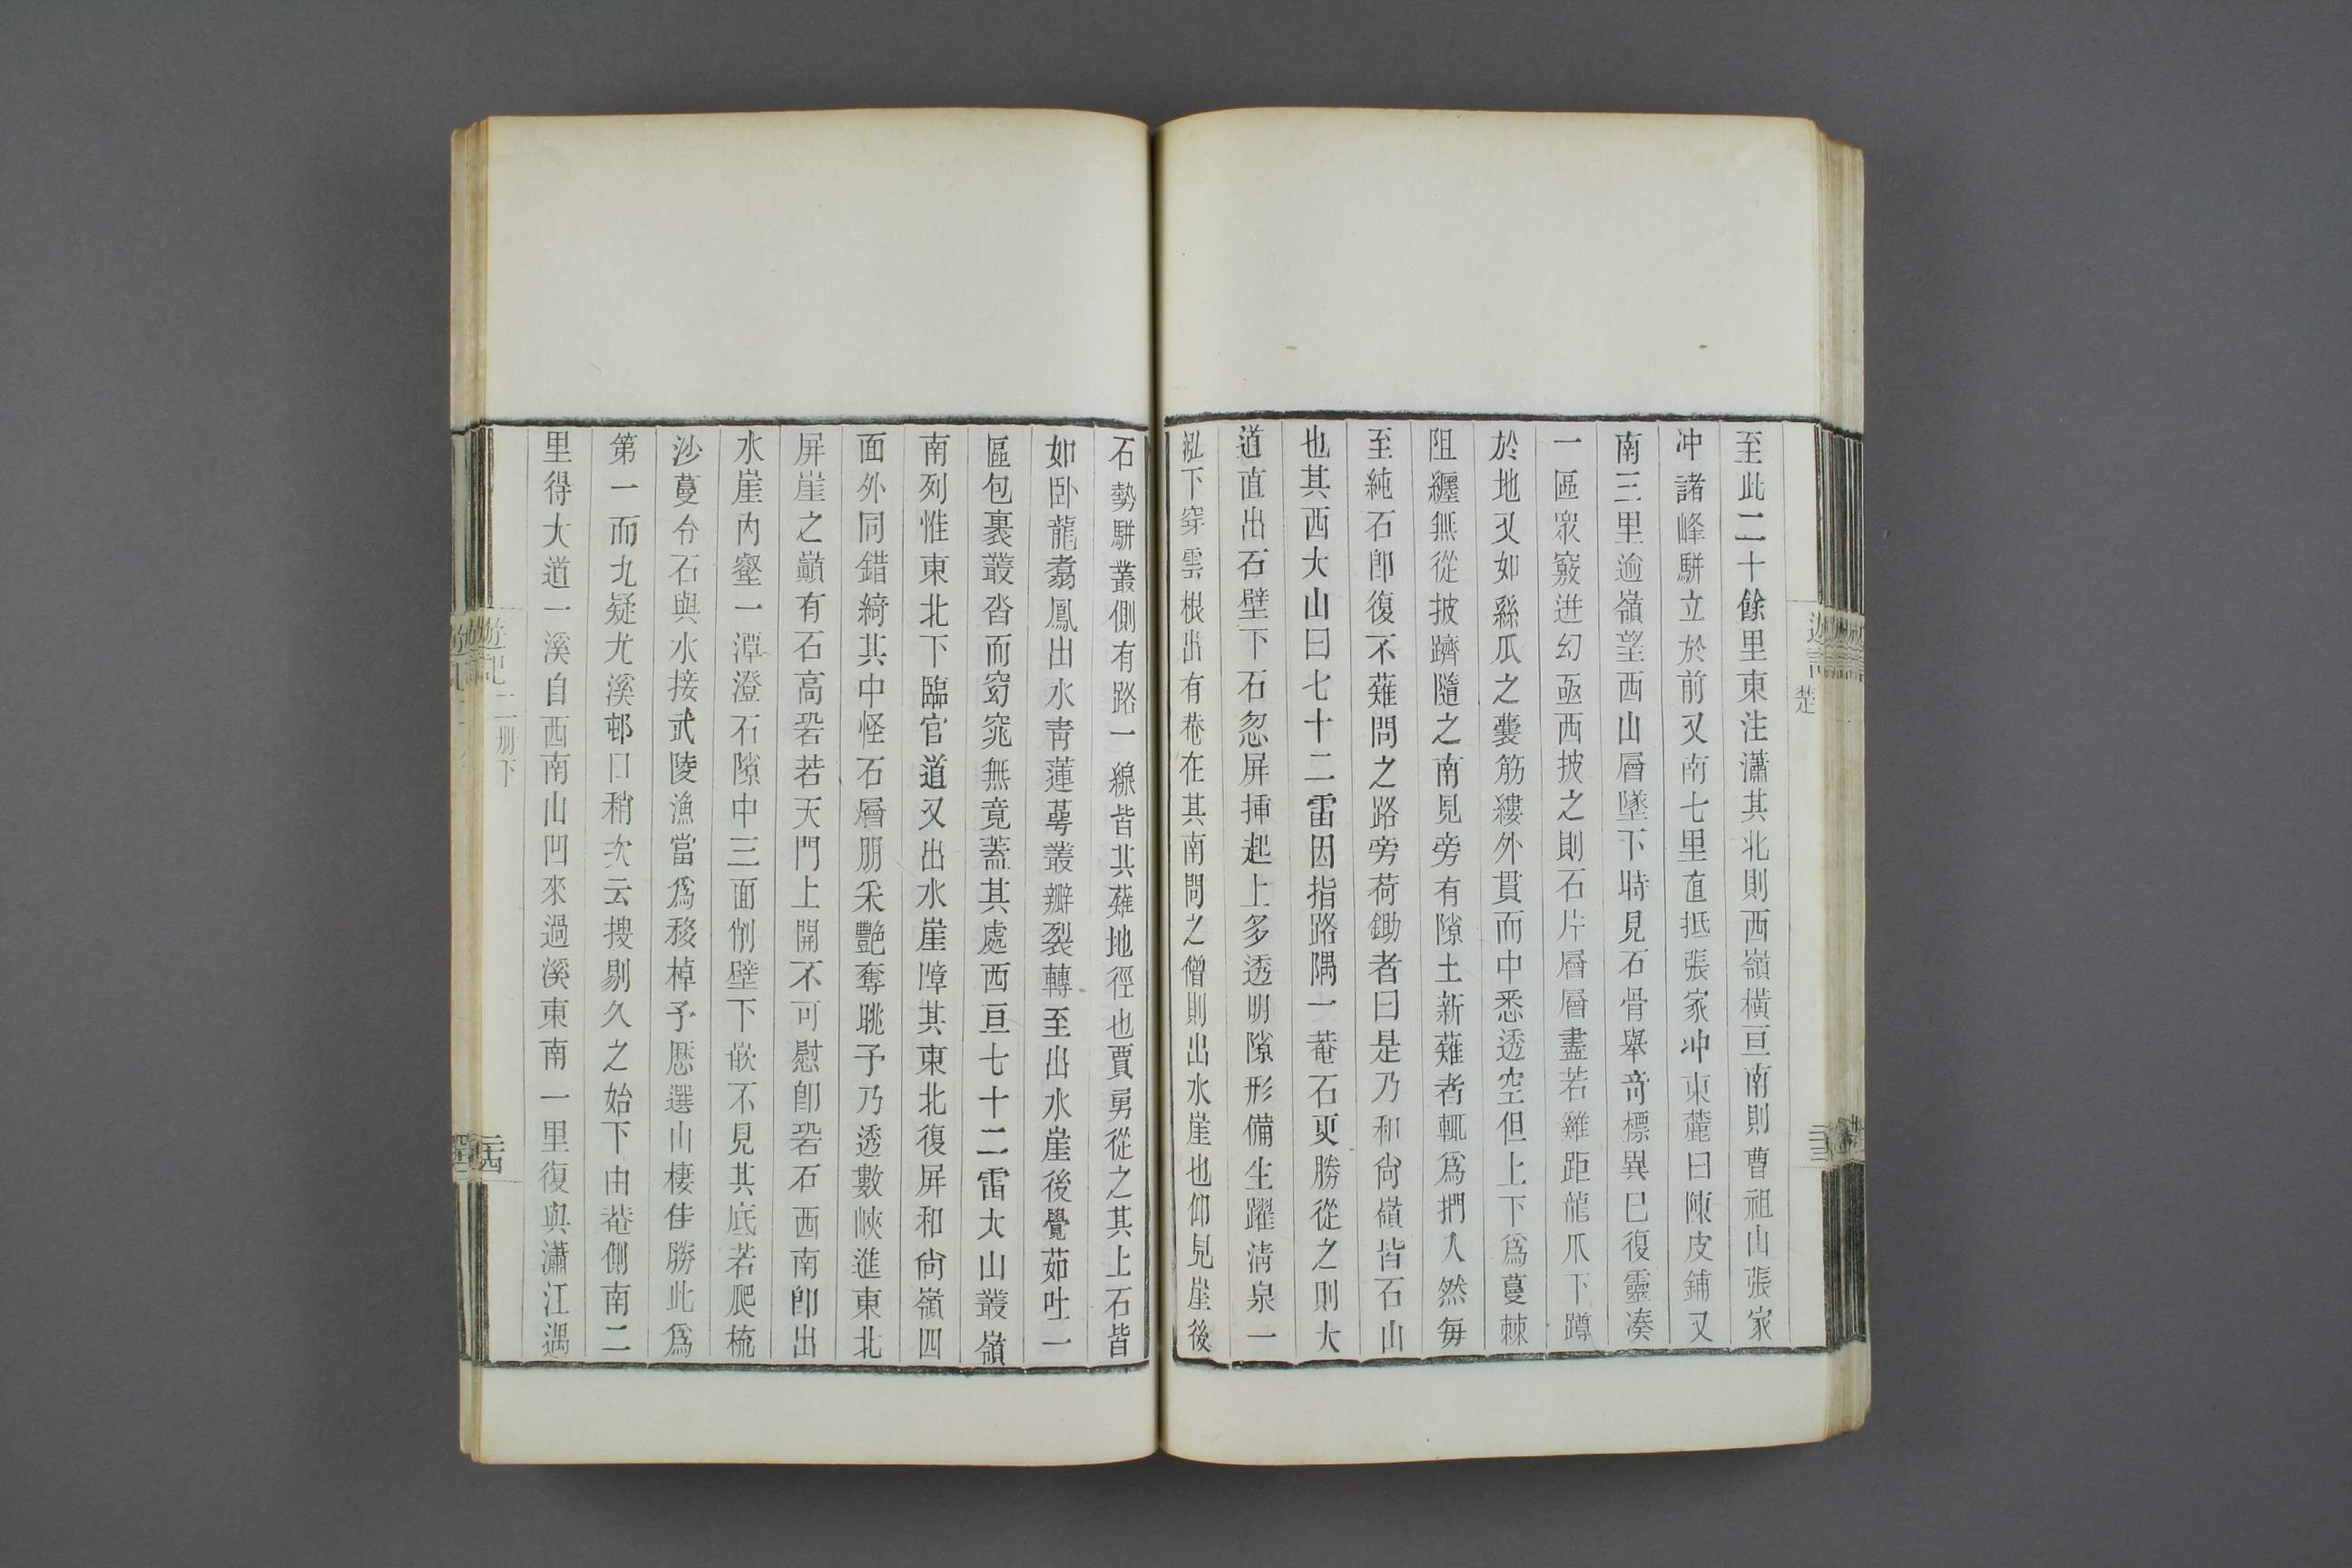 至此二十餘里東注瀟其北則西嶺橫亘南則曹祖山張家
冲諸峰駢立於前又南七里直抵張家冲東麓曰陳皮鋪又
南三里逾嶺望西山層墜下時見石骨舉奇標異已復靈湊
一區眾竅迸幻亟西披之則石片層層盡若雞距龍爪下蹲
於地又如絲瓜之囊筋縷外貫而中悉透空但上下爲蔓棘
阻纏無從披躋隨之南見旁有隙土新薙者輒爲捫入然每
至純石卽復不薙問之路旁荷鋤者曰是乃和尙嶺皆石山
也其西大山曰七十二雷因指路隅一菴石更勝從之則大
道直出石壁下石忽屏揷起上多透明隙形備生躍淸泉一
泓下穿雲根出有菴在其南問之僧則出水崖也仰見崖後
石勢駢叢側有路一線皆其薙地徑也賈勇從之其上石皆
如卧龍翥鳳出水靑蓮萼叢瓣裂轉至出水崖後覺茹吐一
區包裹叢沓而窈窕無竟蓋其處西亘七十二雷大山叢嶺
南列惟東北下臨官道又出水崖障其東北復屏和尙嶺四
面外同錯綺其中怪石層朋采艷奪眺予乃透數峽進東北
屏崖之巔有石高碞若天門上開不可慰卽碞石西南卽出
水崖內壑一潭澄石隙中三面削壁下嵌不見其底若爬梳
沙蔓令石與水接武陵漁當爲移棹予歷選山棲佳勝此爲
第一而九疑尤溪邨口稍次云搜剔久之始下由菴側南二
里得大道一溪自西南山凹來過溪東南一里復與瀟江遇
遊記
楚
二十三
遊記
二册下
二十四